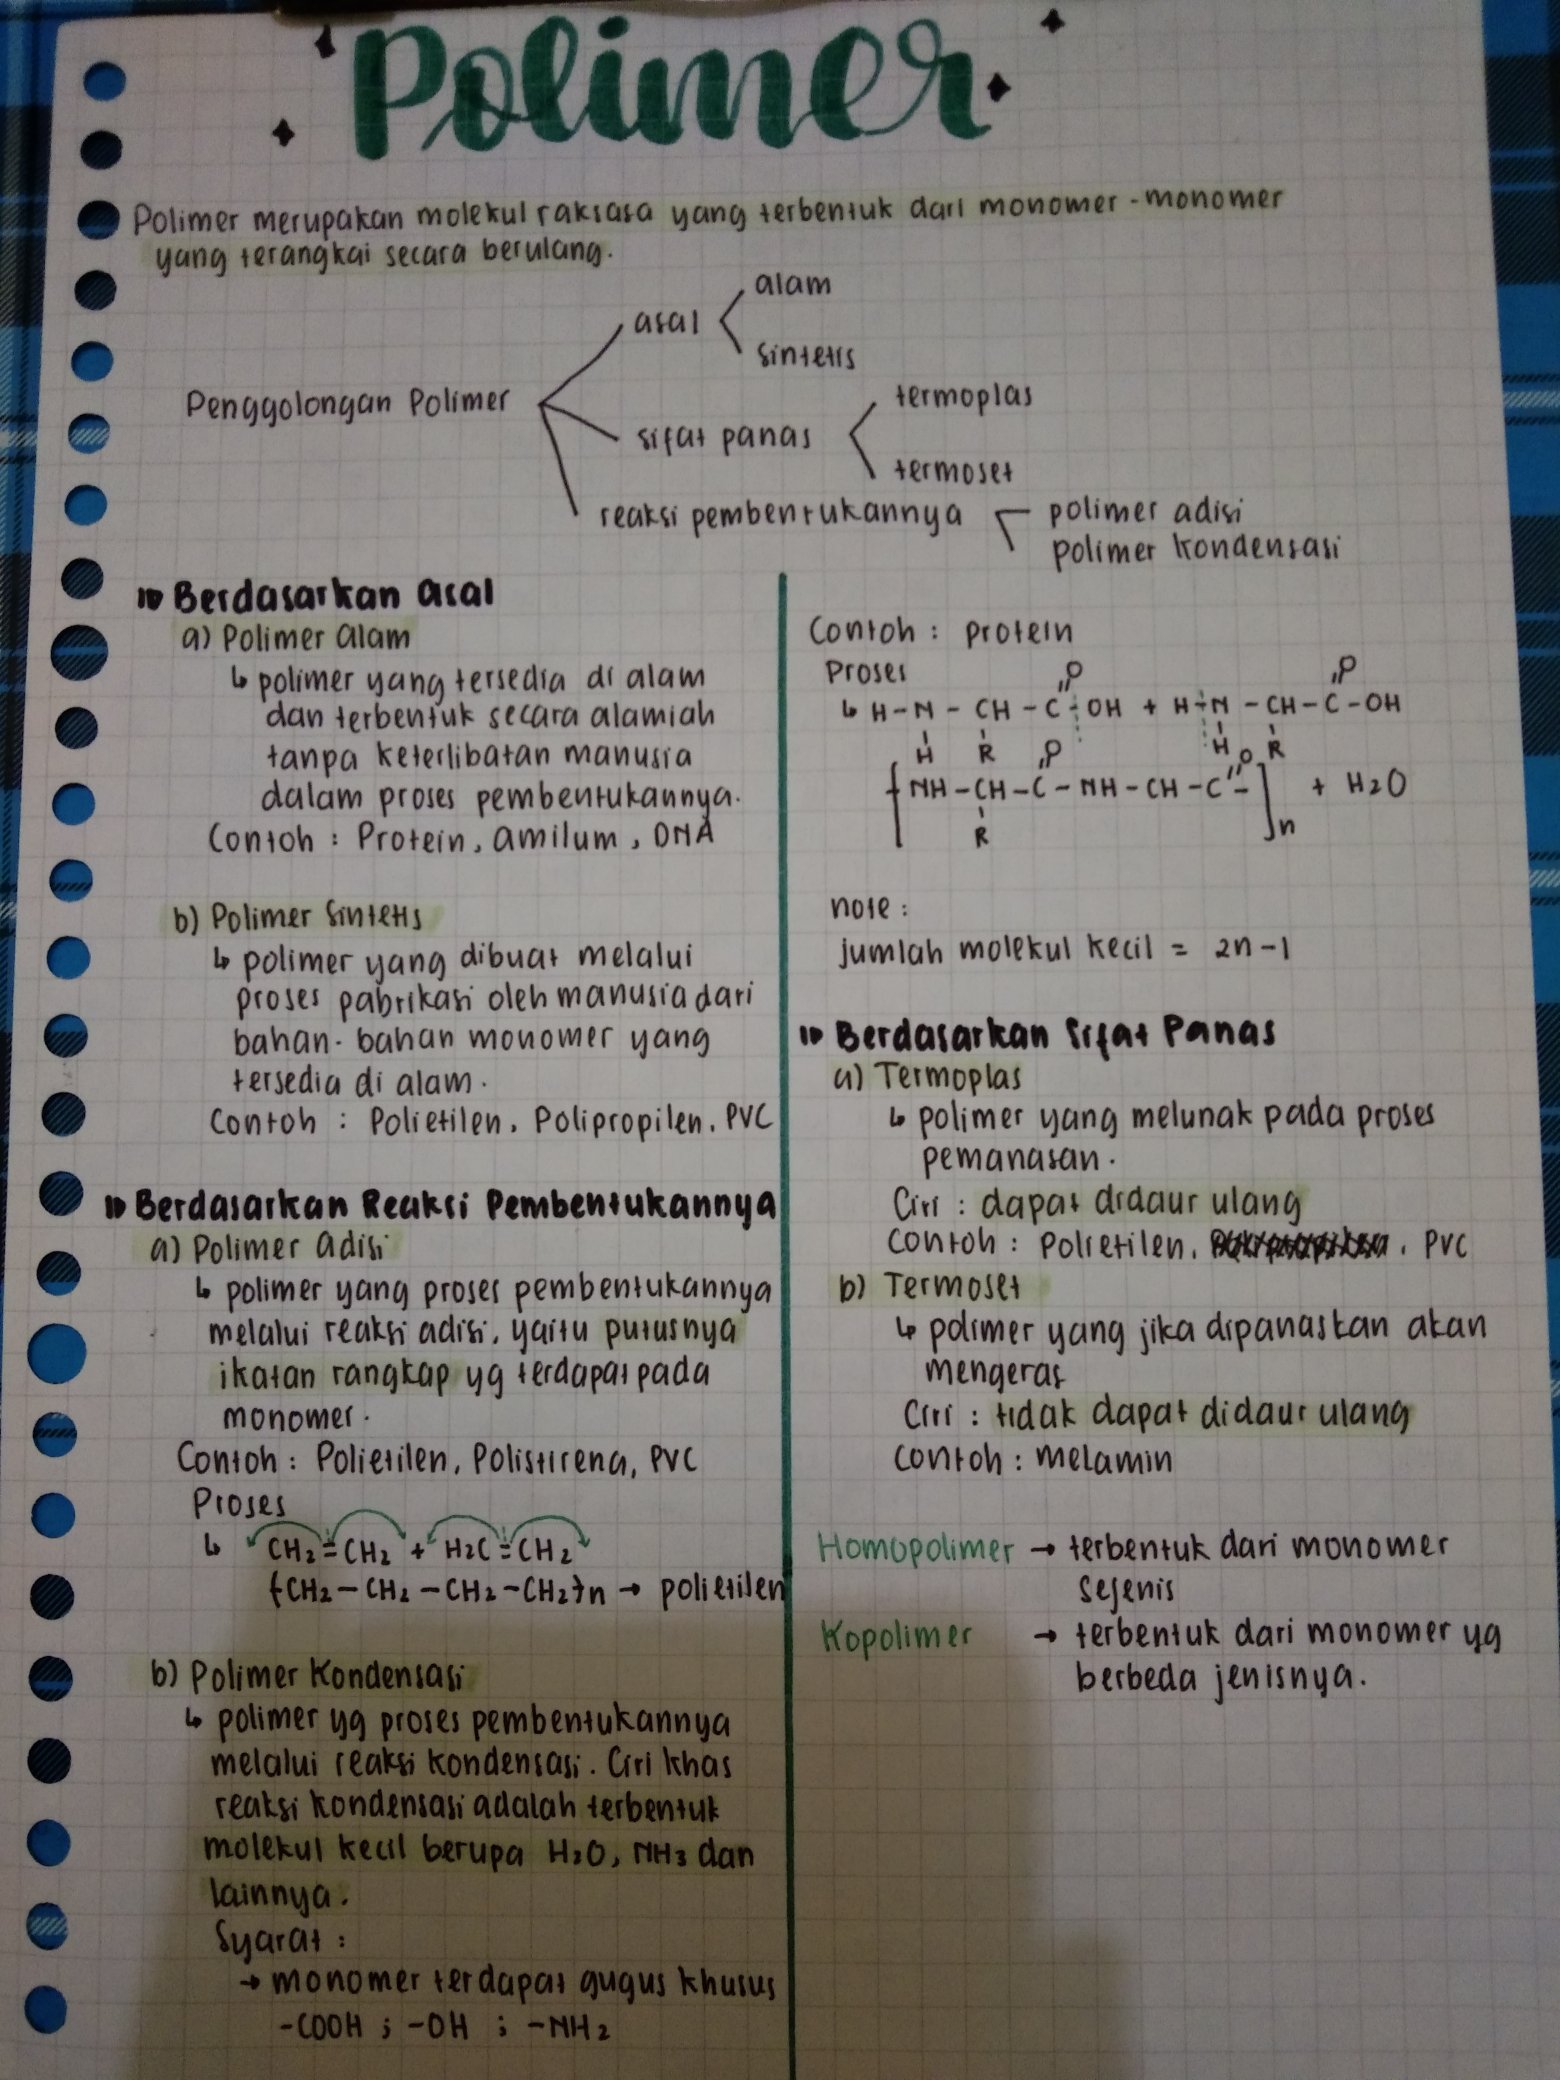 Polimer
Polimer merupakan molekul raksasa yang terbentuk dari monomer-monomer
yang terangkai secara berulang.
Penggolongan Polimer
asal
alam
sintetis
sifat panas
termoplas
termoset
reaksi pembentukannya
polimer adisi
polimer kondensasi
Berdasarkan Asal
a) Polimer Alam
↳ polimer yang tersedia di alam
dan terbentuk secara alamiah
tanpa keterlibatan manusia
dalam proses pembentukannya.
Contoh : Protein, amilum, DNA
b) Polimer Sintetis
↳ polimer yang dibuat melalui
proses pabrikasi oleh manusia dari
bahan-bahan monomer yang
tersedia di alam.
Contoh : Polietilen, Polipropilen, PVC
Berdasarkan Reaksi Pembentukannya
a) Polimer Adisi
↳ polimer yang proses pembentukannya
melalui reaksi adisi, yaitu putusnya
ikatan rangkap yg terdapat pada
monomer.
Contoh : Polietilen, Polistirena, PVC
Proses
↳ CH2=CH2 + H2C=CH2
{CH2-CH2-CH2-CH2}n → polietilen
b) Polimer Kondensasi
↳ polimer yg proses pembentukannya
melalui reaksi kondensasi. Ciri khas
reaksi kondensasi adalah terbentuk
molekul kecil berupa H2O, NH3 dan
lainnya.
Syarat :
→ monomer terdapat gugus khusus
-COOH ; -OH ; -NH2
Contoh : protein
Proses
O O
↳ H-N-CH-C-OH + H-N-CH-C-OH
H R O H O R
[NH-CH-C-NH-CH-C-]n + H2O
R
note :
jumlah molekul kecil = 2n-1
Berdasarkan Sifat Panas
a) Termoplas
↳ polimer yang melunak pada proses
pemanasan.
Ciri : dapat didaur ulang
Contoh : Polietilen, PVC
b) Termoset
↳ polimer yang jika dipanaskan akan
mengeras
Ciri : tidak dapat didaur ulang
Contoh : melamin
Homopolimer → terbentuk dari monomer
sejenis
Kopolimer → terbentuk dari monomer yg
berbeda jenisnya.